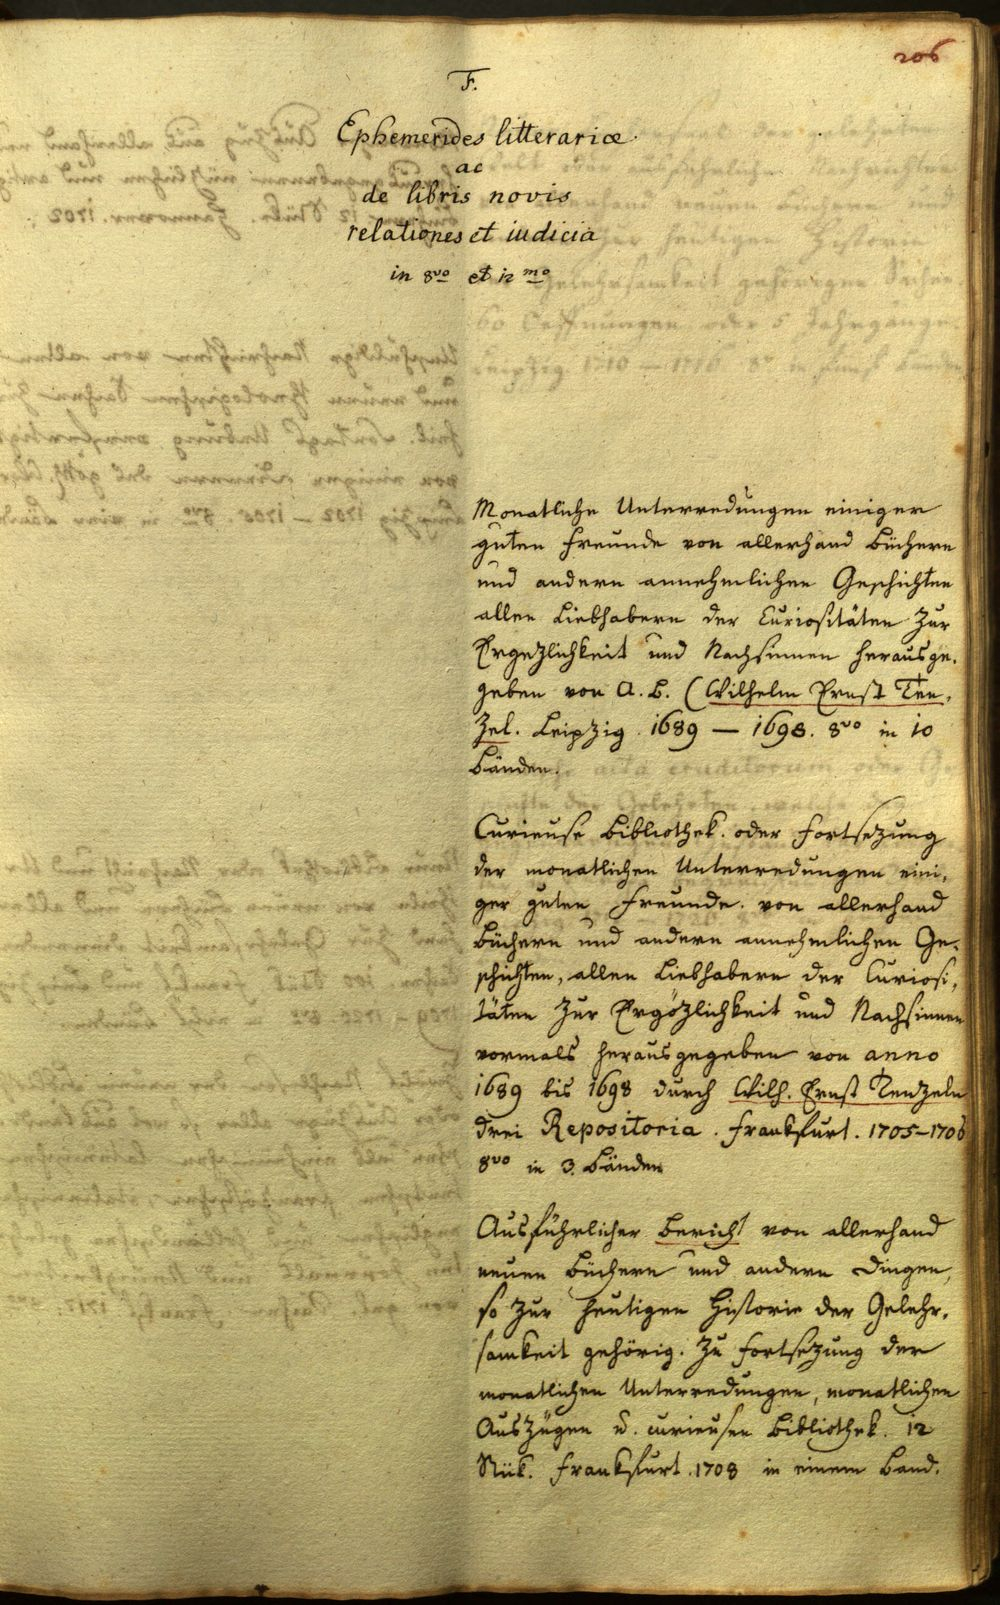 206
F.
Ephemerides litterariæ
ac
de libris novis
relationes et iudicia
in 8vo et 12mo
Monatliche Unterredungen einiger
guten Freunde von allerhand Büchern
und andern annehmlichen Geschichten
allen Liebhabern der Curiositäten zur
Ergezlichkeit und Nachsinnen herausge-
geben von A. B. (Wilhelm Ernst Ten-
zel. Leipzig. 1689 — 1698. 8vo in 10
Bänden.
Curieuse Bibliothek. oder Fortsezung
der monatlichen Unterredungen eini-
ger guten Freunde. von allerhand
Büchern und andern annehmlichen Ge-
schichten, allen Liebhabern der Curiosi-
täten zur Ergözlichkeit und Nachsinnen
vormals herausgegeben von anno
1689 bis 1698 durch Wilh. Ernst Tenzeln
drei Repositoria. Frankfurt. 1705–1706
8vo in 3. Bänden
Ausführlicher Bericht von allerhand
neuen Büchern und andern Dingen,
so zur heutigen Historie der Gelehr-
samkeit gehörig. Zu Fortsezung der
monatlichen Unterredungen, monatlichen
Auszügen u. curieusen Bibliothek. 12
Stük. Frankfurt. 1708 in einem Band.